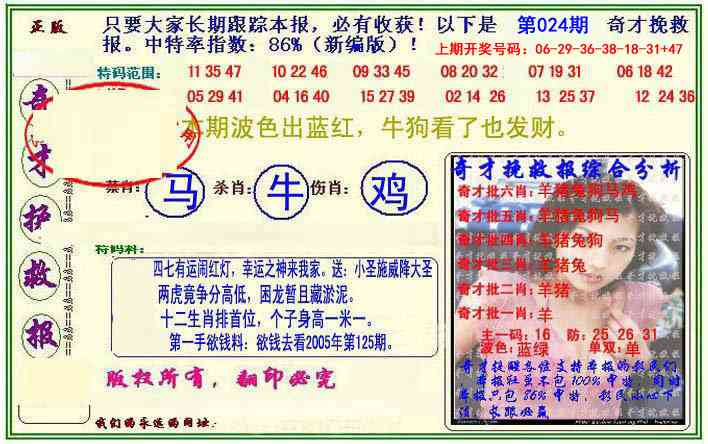 正版
只要大家长期跟踪本报，必有收获！以下是 第024期 奇才挽救
报。中特率指数：86%（新编版）！
上期开奖号码：06-29-36-38-18-31+47
特码范围：
11 35 47 10 22 46 09 33 45 08 20 32 07 19 31 06 18 42
05 29 41 04 16 40 15 27 39 02 14 26 13 25 37 12 24 36
奇才护救报
本期波色出蓝红，牛狗看了也发财。
马 杀肖：牛 伤肖：鸡
特码料：
四七有运闹红灯，幸运之神来我家。送：小圣施威降大圣
两虎竟争分高低，困龙暂且藏淤泥。
十二生肖排首位，个子身高一米一。
第一手欲钱料：欲钱去看2005年第125期。
版权所有，翻印必究
我们的永远的网址：
奇才挽救报综合分析
奇才批六肖：羊猪兔狗马鸡
奇才批五肖：羊猪兔狗马
奇才批四肖：羊猪兔狗
奇才批三肖：羊猪兔
奇才批二肖：羊猪
奇才批一肖：羊
主一码：16 防：25 26 31
波色：蓝绿 单双：单